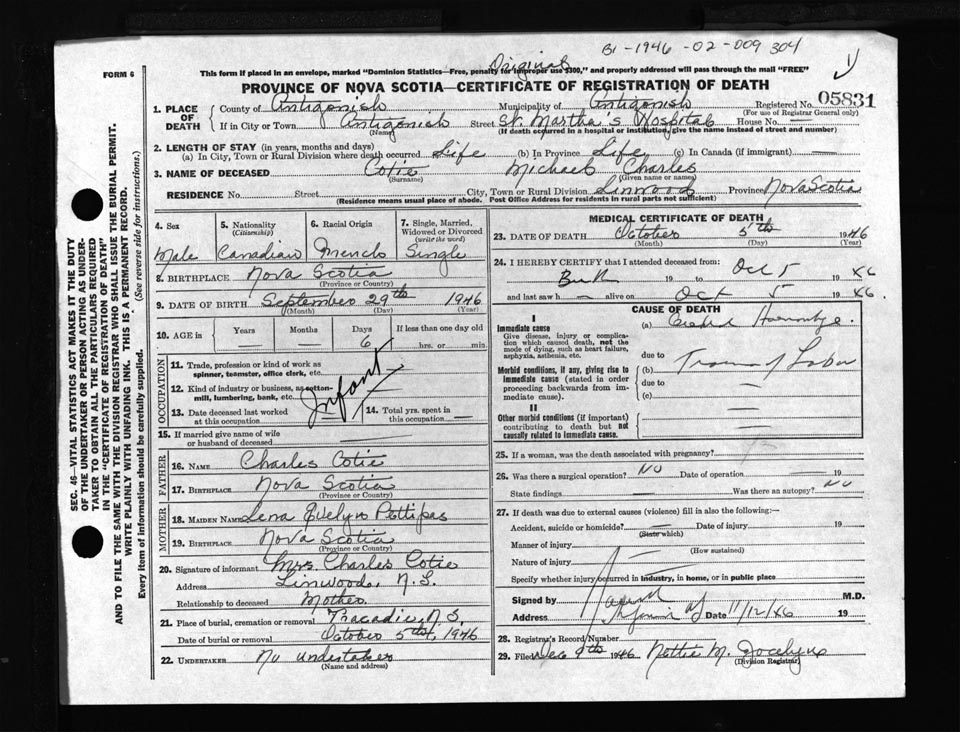 B1-1946-02-009304
Original
FORM 6
This form if placed in an envelope, marked "Dominion Statistics—Free, penalty for improper use $300," and properly addressed will pass through the mail "FREE"
PROVINCE OF NOVA SCOTIA—CERTIFICATE OF REGISTRATION OF DEATH
1. PLACE OF DEATH { County of Antigonish Municipality of Antigonish Registered No. 05831
(For use of Registrar General only)
If in City or Town Antigonish Street St. Martha's Hospital House No. —
(Name) (If death occurred in a hospital or institution, give the name instead of street and number)
2. LENGTH OF STAY (in years, months and days)
(a) In City, Town or Rural Division where death occurred Life (b) In Province Life (c) In Canada (if immigrant) —
3. NAME OF DECEASED Cotie Michael Charles
(Surname) (Given name or names)
RESIDENCE No. Street City, Town or Rural Division Linwood Province Nova Scotia
(Residence means usual place of abode. Post Office Address for residents in rural parts not sufficient)
4. Sex
Male
5. Nationality
(Citizenship)
Canadian
6. Racial Origin
French
7. Single, Married, Widowed or Divorced
(write the word)
Single
8. BIRTHPLACE Nova Scotia
(Province or Country)
9. DATE OF BIRTH September 29th 1946
(Month) (Day) (Year)
10. AGE in { Years Months Days If less than one day old
6 hrs. or min.
OCCUPATION
11. Trade, profession or kind of work as spinner, teamster, office clerk, etc.
12. Kind of industry or business, as cotton-mill, lumbering, bank, etc.
Infant
13. Date deceased last worked at this occupation —
14. Total yrs. spent in this occupation —
15. If married give name of wife or husband of deceased
FATHER
16. NAME Charles Cotie
17. BIRTHPLACE Nova Scotia
(Province or Country)
MOTHER
18. MAIDEN NAME Lena Evelyn Pettipas
19. BIRTHPLACE Nova Scotia
(Province or Country)
20. Signature of informant Mrs Charles Cotie
Address Linwood, N.S.
Relationship to deceased Mother
21. Place of burial, cremation or removal Tracadie, N.S.
Date of burial or removal October 5th, 1946
22. UNDERTAKER No undertaker
(Name and address)
MEDICAL CERTIFICATE OF DEATH
23. DATE OF DEATH October 5th 1946
(Month) (Day) (Year)
24. I HEREBY CERTIFY that I attended deceased from:
Birth 19 to Oct 5 19 46
and last saw h — alive on Oct 5 19 46.
CAUSE OF DEATH
I
Immediate cause
Give disease, injury or complication which caused death, not the mode of dying, such as heart failure, asphyxia, asthenia, etc.
(a)
due to
Morbid conditions, if any, giving rise to immediate cause (stated in order proceeding backwards from immediate cause).
(b) of Labor
due to
(c)
II
Other morbid conditions (if important) contributing to death but not causally related to immediate cause.
25. If a woman, was the death associated with pregnancy?
26. Was there a surgical operation? No Date of operation — 19
State findings — Was there an autopsy? No
27. If death was due to external causes (violence) fill in also the following:—
Accident, suicide or homicide? — Date of injury — 19
(State which)
Manner of injury
(How sustained)
Nature of injury
Specify whether injury occurred in industry, in home, or in public place
Signed by M.D.
Date 11/12/46 19
28. Registrar's Record Number
29. Filed Dec 9th 1946 Nettie M. Jocelyne
(Division Registrar)
SEC. 46—VITAL STATISTICS ACT MAKES IT THE DUTY
OF THE UNDERTAKER OR PERSON ACTING AS UNDER-
TAKER TO OBTAIN ALL THE PARTICULARS REQUIRED
IN THE "CERTIFICATE OF REGISTRATION OF DEATH"
AND TO FILE THE SAME WITH THE DIVISION REGISTRAR WHO SHALL ISSUE THE BURIAL PERMIT.
WRITE PLAINLY WITH UNFADING INK. THIS IS A PERMANENT RECORD.
Every item of information should be carefully supplied. (See reverse side for instructions.)